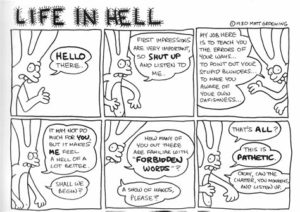 LIFE IN HELL
©1980 MATT GROENING
HELLO
THERE.
FIRST IMPRESSIONS
ARE VERY IMPORTANT,
SO SHUT UP
AND LISTEN TO
ME.
MY JOB HERE
IS TO TEACH YOU
THE ERRORS OF
YOUR WAYS...
TO POINT OUT YOUR
STUPID BLUNDERS...
TO MAKE YOU
AWARE OF
YOUR OWN
OAFISHNESS...
IT MAY NOT DO
MUCH FOR YOU,
BUT IT MAKES
ME FEEL
A HELL OF A
LOT BETTER.
SHALL WE
BEGIN?
HOW MANY OF
YOU OUT THERE
ARE FAMILIAR WITH
"FORBIDDEN
WORDS"?
A SHOW OF HANDS,
PLEASE?
THAT'S ALL?
THIS IS
PATHETIC.
OKAY, CAN THE
CHATTER, YOU MORONS,
AND LISTEN UP.